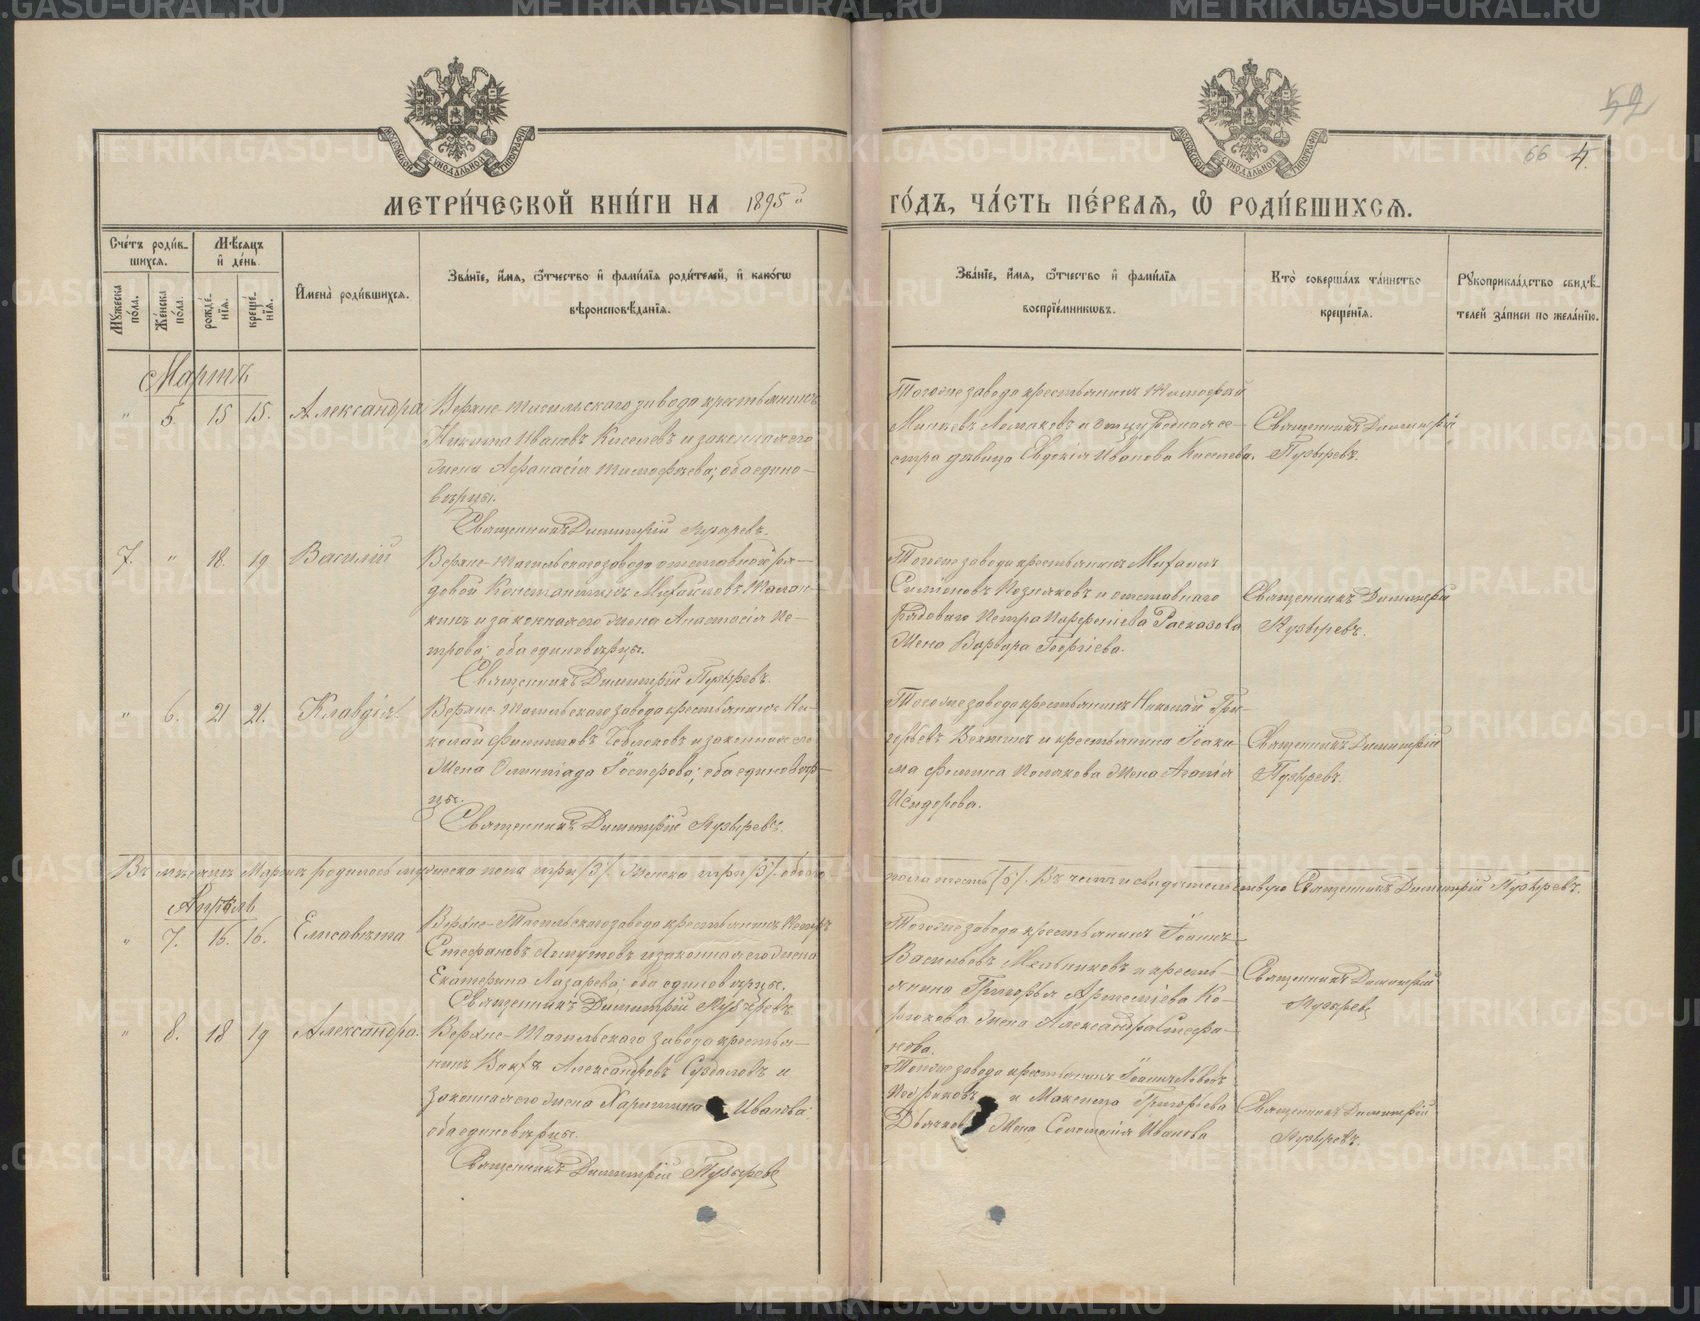 52
66 4.
МОСКОВСКОЙ СУНОДАЛЬНОЙ ТИПОГРАФІИ
МОСКОВСКОЙ СУНОДАЛЬНОЙ ТИПОГРАФІИ
МЕТРИ́ЧЕСКОЙ КНИ́ГИ НА 1895 ГО́ДЪ, ЧА́СТЬ ПЕ́РВАЯ, Ѡ РОДИ́ВШИХСЯ.
Сче́тъ роди́вшихся.
Мѣ́сяцъ и де́нь.
Мужеска по́ла.
Же́нска по́ла.
рожде́нія.
креще́нія.
Имена̀ роди́вшихся.
Зва́ніе, и́мя, ѻ́тчество и фами́лія роди́телей, и како́гѡ
вѣроисповѣ́данія.
Зва́ніе, и́мя, ѻ́тчество и фами́лія
воспріе́мникѡвъ.
Кто̀ соверша́лъ та́инство
креще́нія.
Рукоприкла́дство свидѣ́телей за́писи по жела́нію.
Мартъ
" 5. 15 15. Александра
Верхне-Тагильскаго завода крестьянинъ
Никита Ивановъ Киселевъ и законная его
жена Афанасія Тимофѣева; оба единовѣрцы.
Священникъ Димитрій Пузыревъ.
Тогоже завода крестьянинъ Тимофей
Ломаковъ и отцу родная сестра
дѣвица Евдокія Иванова Киселева.
Священникъ Димитрій
Пузыревъ.
7. " 18. 19 Василій
Верхне-Тагильскаго завода отставной рядовой
Константинъ Михайловъ
и законная его жена Анастасія Петрова;
оба единовѣрцы.
Священникъ Димитрій Пузыревъ.
Тогоже завода крестьянинъ Михаилъ
Симоновъ Позняковъ и отставнаго
рядоваго Петра Парфеніева Расказова
жена Варвара Георгіева.
Священникъ Димитрій
Пузыревъ.
" 6. 21 21. Клавдія.
Верхне-Тагильскаго завода крестьянинъ Николай
Филипповъ и законная его
жена Олимпіада; оба единовѣрцы.
Священникъ Димитрій Пузыревъ.
Тогоже завода крестьянинъ Николай Григорьевъ
и крестьянина Іоакима
Фомина Полякова жена Агапія
Исидорова.
Священникъ Димитрій
Пузыревъ.
Въ мѣсяцѣ Мартѣ родилось мужеска пола три /3/. Женска три /3/. обоего
пола шесть /6/. Въ чемъ и свидѣтельствую Священникъ Димитрій Пузыревъ.
Апрѣль
" 7. 16. 16. Елисавета
Верхне-Тагильскаго завода крестьянинъ Петръ
Стефановъ и законная его жена
Екатерина Лазарева; оба единовѣрцы.
Священникъ Димитрій Пузыревъ.
Тогоже завода крестьянинъ Іоаннъ
Васильевъ Мельниковъ и крестьянина
Григорья
жена Александра Стефанова.
Священникъ Димитрій
Пузыревъ
" 8. 18 19 Александра.
Верхне-Тагильскаго завода крестьянинъ
Александровъ и
законная его жена Харитина Иванова;
оба единовѣрцы.
Священникъ Димитрій Пузыревъ
Тогоже завода крестьянинъ Іоаннъ
и Максима Григорьева
жена Соломонія Иванова
Священникъ Димитрій
Пузыревъ.
METRIKI.GASO-URAL.RU